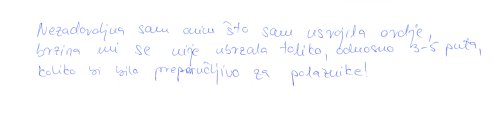 Nezadovoljna sam onim što sam usvojila ovdje,
brzina mi se nije ubrzala toliko, odnosno 3-5 puta,
koliko bi bilo preporučljivo za polaznike!